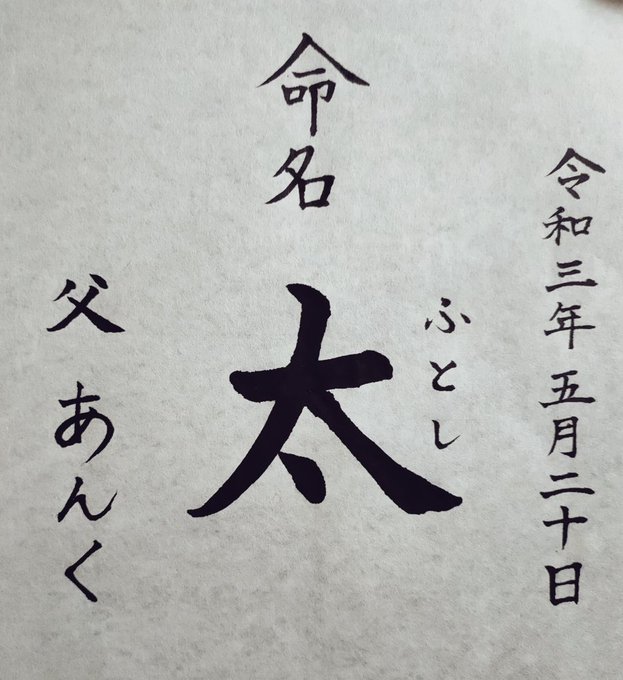 令和三年五月二十日
ふとし
命名
太
父 あんく